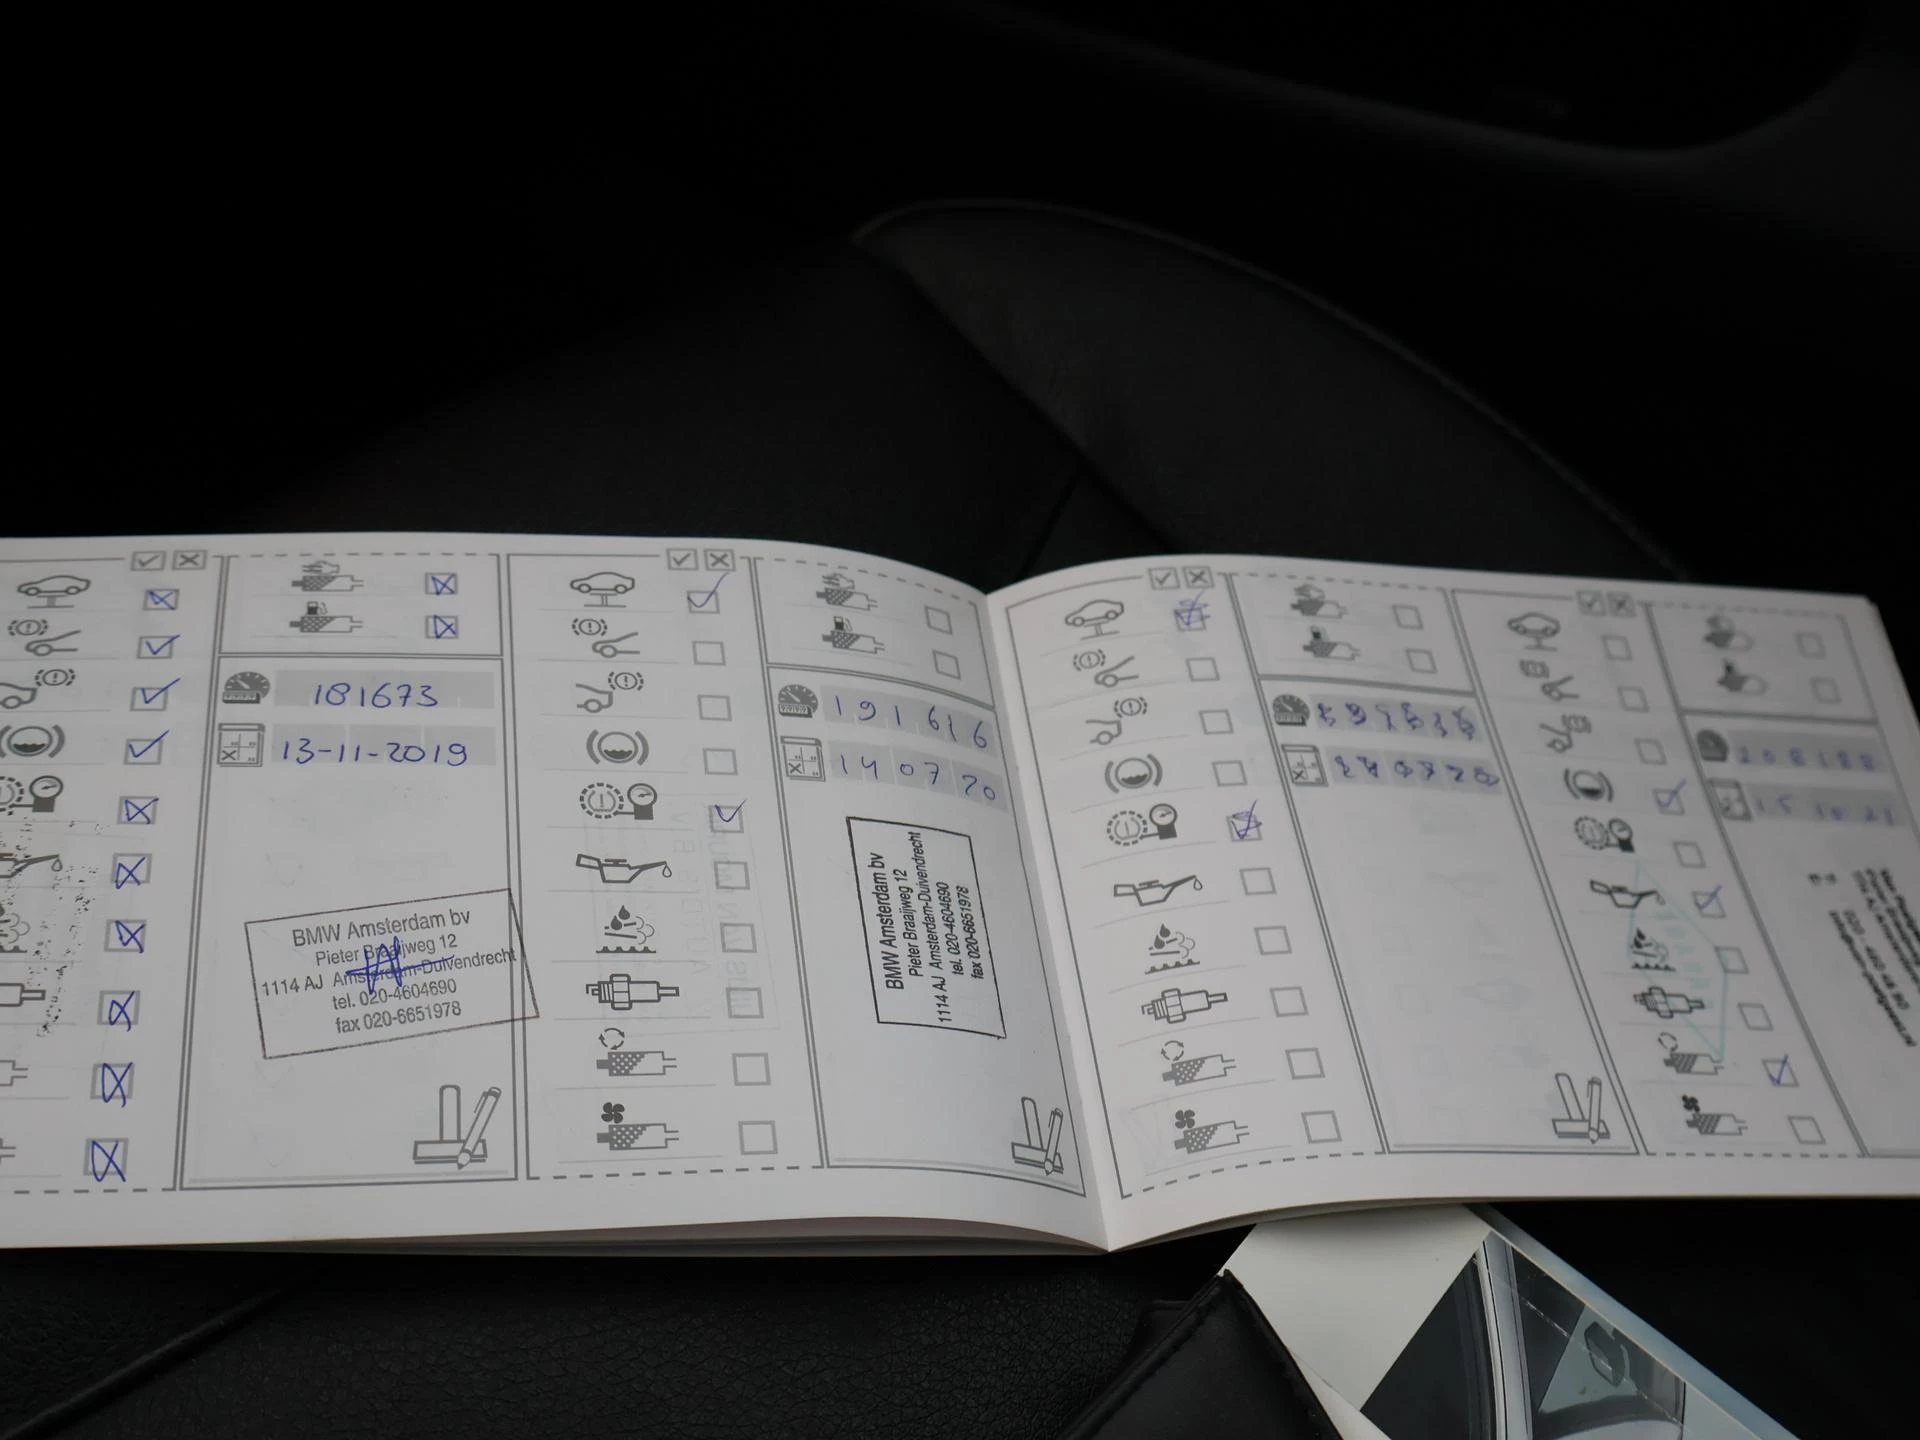 181673
13-11-2019
BMW Amsterdam bv
Pieter Braaijweg 12
1114 AJ Amsterdam-Duivendrecht
tel. 020-4604690
fax 020-6651978
191616
14 07 20
BMW Amsterdam bv
Pieter Braaijweg 12
1114 AJ Amsterdam-Duivendrecht
tel. 020-4604690
fax 020-6651978
208188
15 10 21